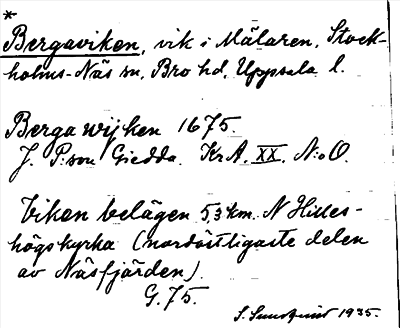 *
Bergaviken, vik i Mälaren, Stock-
holms-Näs sn, Bro hd, Uppsala l.
Bergawijken 1675.
J. P:son Giedda. KrA. XX. N:o O.
Viken belägen 5,3 km. N Hilles-
högs kyrka (nordöstligaste delen
av Näsfjärden).
G. 75.
S. Sundquist 1935.